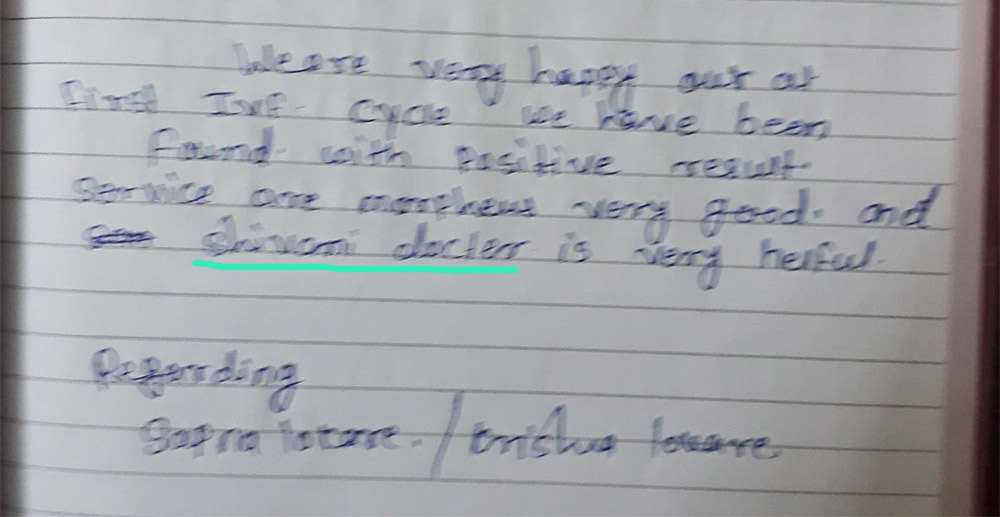 We are very happy our at
first Ivf. Cycle we have been
found with Positive result.
Service are morpheus very good. and
shivani docter is very helful.
Regarding
/